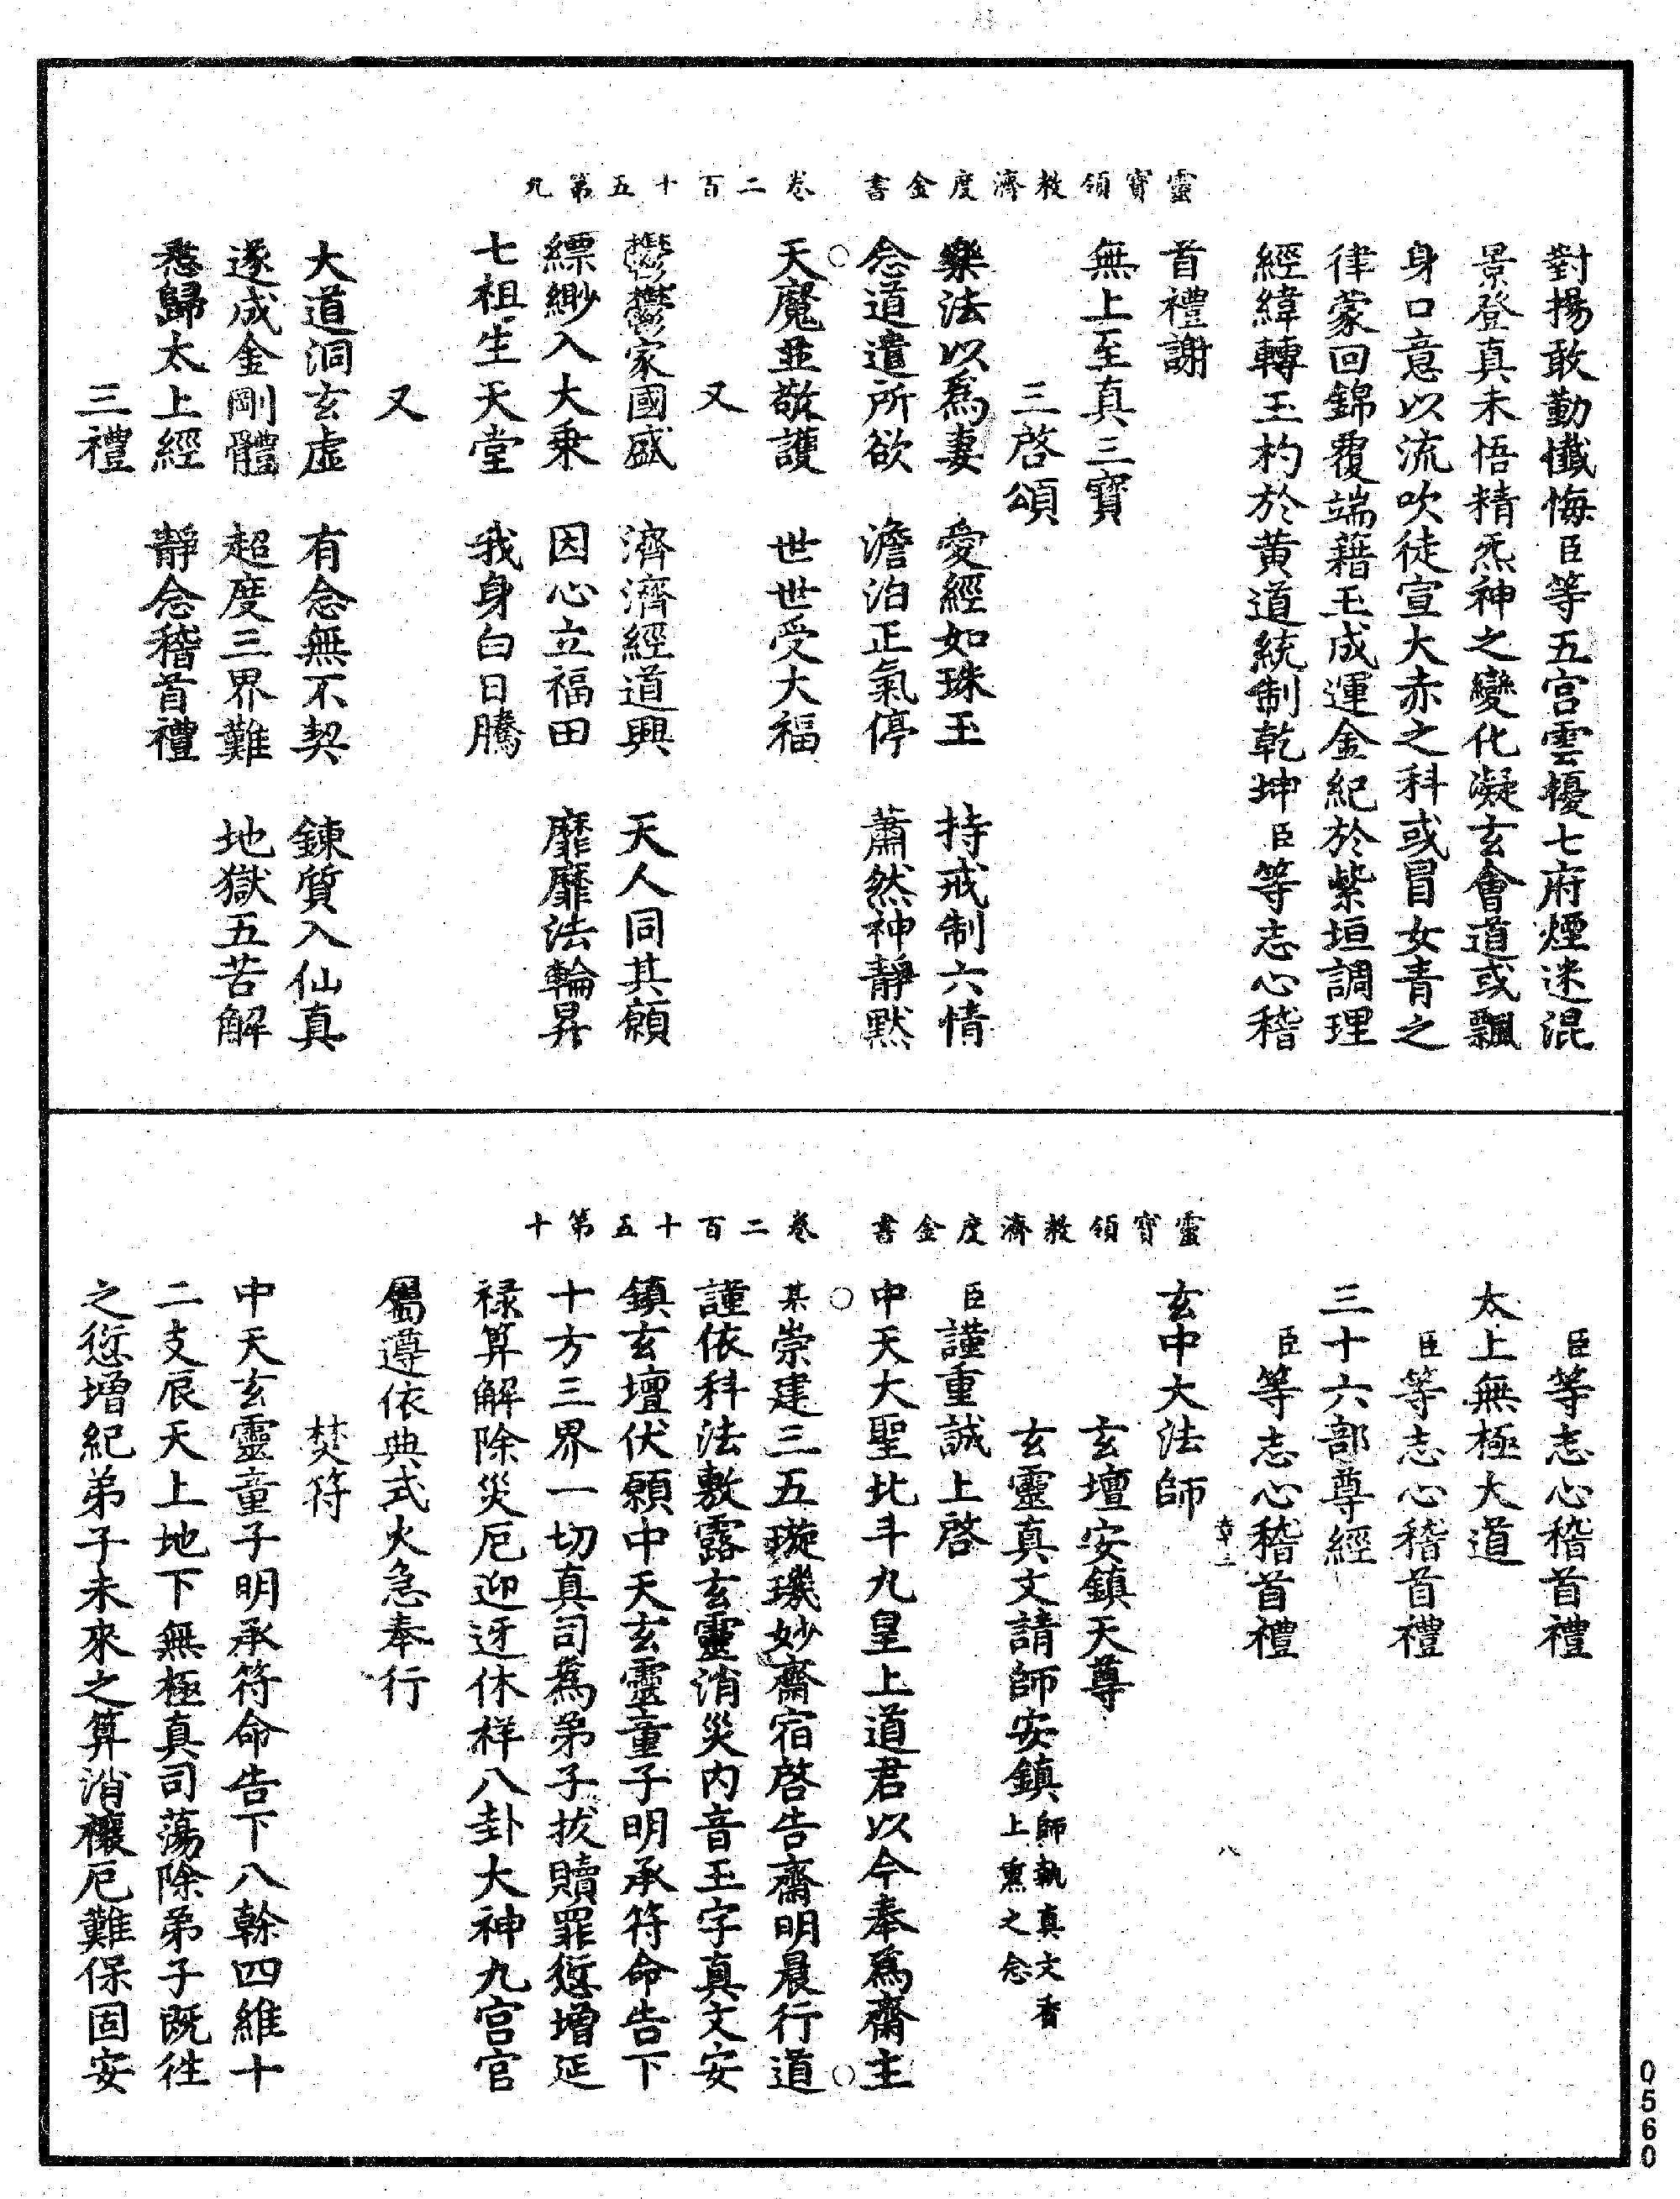 靈寶領教濟度金書　卷二百十五第九
對揚敢勤懺悔臣等五宮雲擾七府煙迷混
景登真未悟精炁神之變化凝玄會道或飄
身口意以流吹徒宣大赤之科或冒女青之
律蒙回錦覆端藉玉成運金紀於紫垣調理
經緯轉玉杓於黃道統制乾坤臣等志心稽
首禮謝
無上至真三寶
三啓頌
樂法以爲妻　愛經如珠玉　持戒制六情
念道遣所欲　澹泊正氣停　蕭然神靜默
天魔並敬護　世世受大福
又
鬱鬱家國盛　濟濟經道興　天人同其願
縹緲入大乘　因心立福田　靡靡法輪昇
七祖生天堂　我身白日騰
又
大道洞玄虛　有念無不契　鍊質入仙真
遂成金剛體　超度三界難　地獄五苦解
悉歸太上經　靜念稽首禮
三禮
靈寶領教濟度金書　卷二百十五第十
臣等志心稽首禮
太上無極大道
臣等志心稽首禮
三十六部尊經
臣等志心稽首禮
章三　八
玄中大法師
玄壇安鎮天尊
玄靈真文請師安鎮師執真文香上熏之念
臣謹重誠上啓
中天大聖北斗九皇上道君以今奉爲齋主
某崇建三五璇璣妙齋宿啓告齋明晨行道
謹依科法敷露玄靈消災內音玉字真文安
鎮玄壇伏願中天玄靈童子明承符命告下
十方三界一切真司爲弟子拔贖罪愆增延
祿算解除災厄迎迓休祥八卦大神九宮官
屬遵依典式火急奉行
焚符
中天玄靈童子明承符命告下八榦四維十
二支辰天上地下無極真司蕩除弟子既往
之愆增紀弟子未來之算消禳厄難保固安
0560